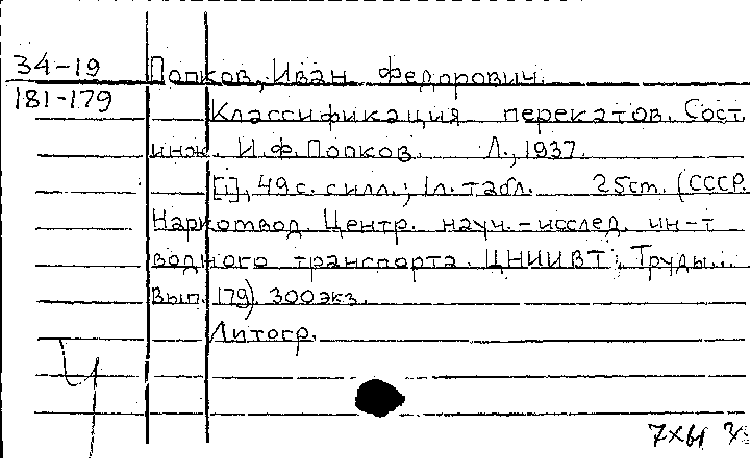 34-19 Попков, Иван Федорович.
181-179
Классификация перекатов. Сост.
инж. И.Ф. Попков. Л., 1937.
[1], 49 с. с илл.; 1 л. табл. 25 cm. (СССР.
Наркомвод. Центр. науч.-исслед. ин-т
водного транспорта. ЦНИИВТ. Труды...
Вып. 179). 300 экз.
Литогр.